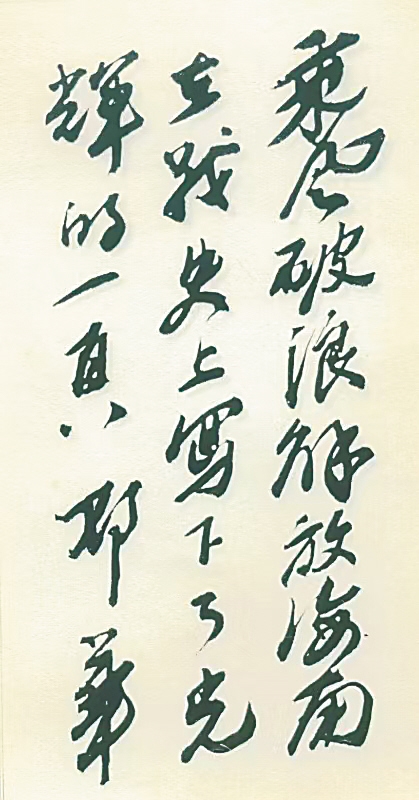 乘风破浪解放海南
在战史上寫下了光
輝的一頁 邓華